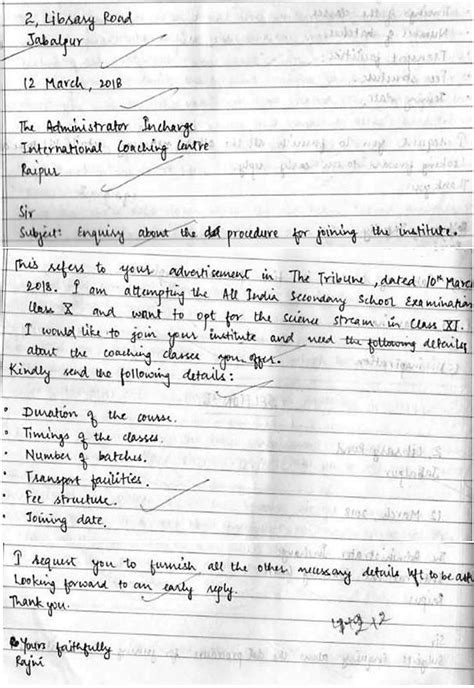 2, Library Road
Jabalpur
12 March, 2018
The Administrator Incharge
International Coaching Centre
Raipur
Sir
Subject: Enquiry about the procedure for joining the institute.
This refers to your advertisement in The Tribune, dated 10th Marc
2018. I am attempting the All India Secondary School Examination
Class X and want to opt for the science stream in Class XI.
I would like to join your institute and need the following detailes
about the coaching classes you offer.
Kindly send the following details:
• Duration of the course.
• Timings of the classes.
• Number of batches.
• Transport facilities.
• Fee structure.
• Joining date.
I request you to furnish all the other necessary details left to be ask
Looking forward to an early reply.
Thank you.
Yours faithfully
Rajni